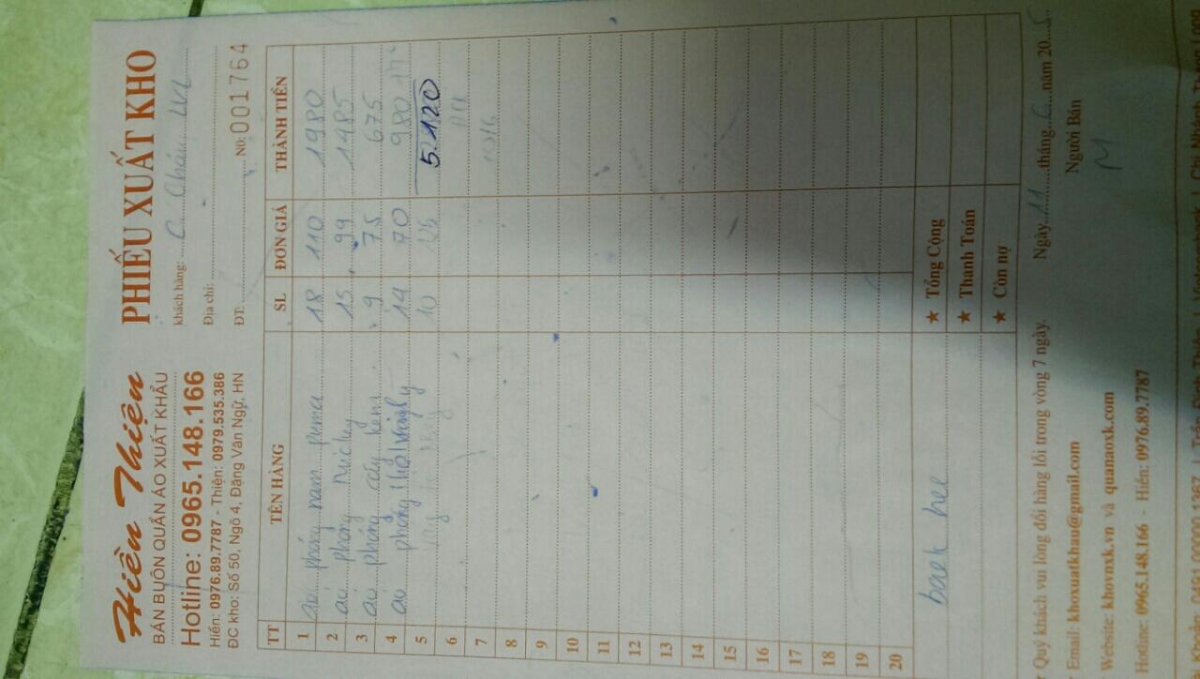 Hiền Thiện
BÁN BUÔN QUẦN ÁO XUẤT KHẨU
Hotline: 0965.148.166
Hiền: 0976.89.7787 - Thiện: 0979.535.386
ĐC kho: Số 50, Ngõ 4, Đặng Văn Ngữ, HN
PHIẾU XUẤT KHO
khách hàng: C. Châu
Địa chỉ:
ĐT: N0: 001764
TT TÊN HÀNG SL ĐƠN GIÁ THÀNH TIỀN
1 áo phông nam puma 18 110 1980
2 áo phông Mickey 15 99 1485
3 áo phông cây kem 9 75 675
4 áo phông 14 70 980
5 váy 10 5.120
6
7
8
9
10
11
12
13
14
15
16
17
18
19
20
★ Tổng Cộng
★ Thanh Toán
★ Còn nợ
Quý khách vui lòng đổi hàng lỗi trong vòng 7 ngày. Ngày 11 tháng 6 năm 20 5
Email: khoxuatkhau@gmail.com Người Bán
Website: khovnxk.vn và quanaoxk.com
Hotline: 0965.148.166 - Hiền: 0976.89.7787